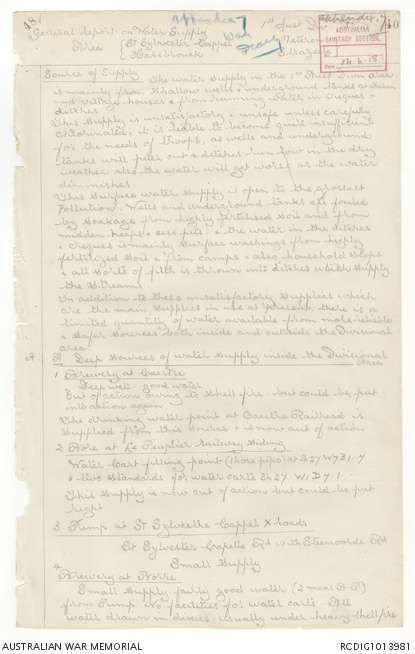 General Report on Water Supply
Area { St Sylvestre Cappel
Hazebrouck
Appendix 7
War Diary
1st Aust Div
AUSTRALIAN
SANITARY SECTION
Date
Source of Supply The water supply in the 1st Aust Div area
is mainly from shallow wells & underground tanks at farms
and village houses & from running water in creques &
ditches
This supply is unsatisfactory & unsafe unless carefully
chlorinated; it is liable to become quite insufficient
for the needs of troops, as wells and underground
tanks will peter out & ditches run low in the dry
weather also the water will get worse as the water
diminishes.
This surface water supply is open to the grossest
Pollution. Wells and underground tanks are fouled
by soakage from highly fertilised soil and from
midden heaps & cess pits & the water in the ditches
& creques is mainly surface washings from highly
fertilized soil & from camps & also household slops
& all sorts of filth is thrown into ditches which supply
the streams
In addition to these unsatisfactory supplies which
are the main supplies in use at present, there is a
limited quantity of water available from more reliable
& safer sources both inside and outside the Divisional
area
A Deep Sources of water supply inside the Divisional
Area
1 Brewery at Caestre
Deep well good water
Out of action owing to shell fire but could be put
into action again
The drinking water point at Caestre Railhead is
supplied from this source & is now out of action
2 Bore at Le Peuplier Railway Siding
Water cart filling point
& two standards for water carts
This supply is now out of action but could be put
right
3 Pump at St Sylvestre Cappel X roads
St Sylvestre Cappelle Rd with Steenvoorde Rd
Small supply
4
Brewery at Borre
Small supply fairly good water
from Pump No facilities for water carts
water drawn in dixies usually under heavy shell fire
AUSTRALIAN WAR MEMORIAL
RCDIG1013981